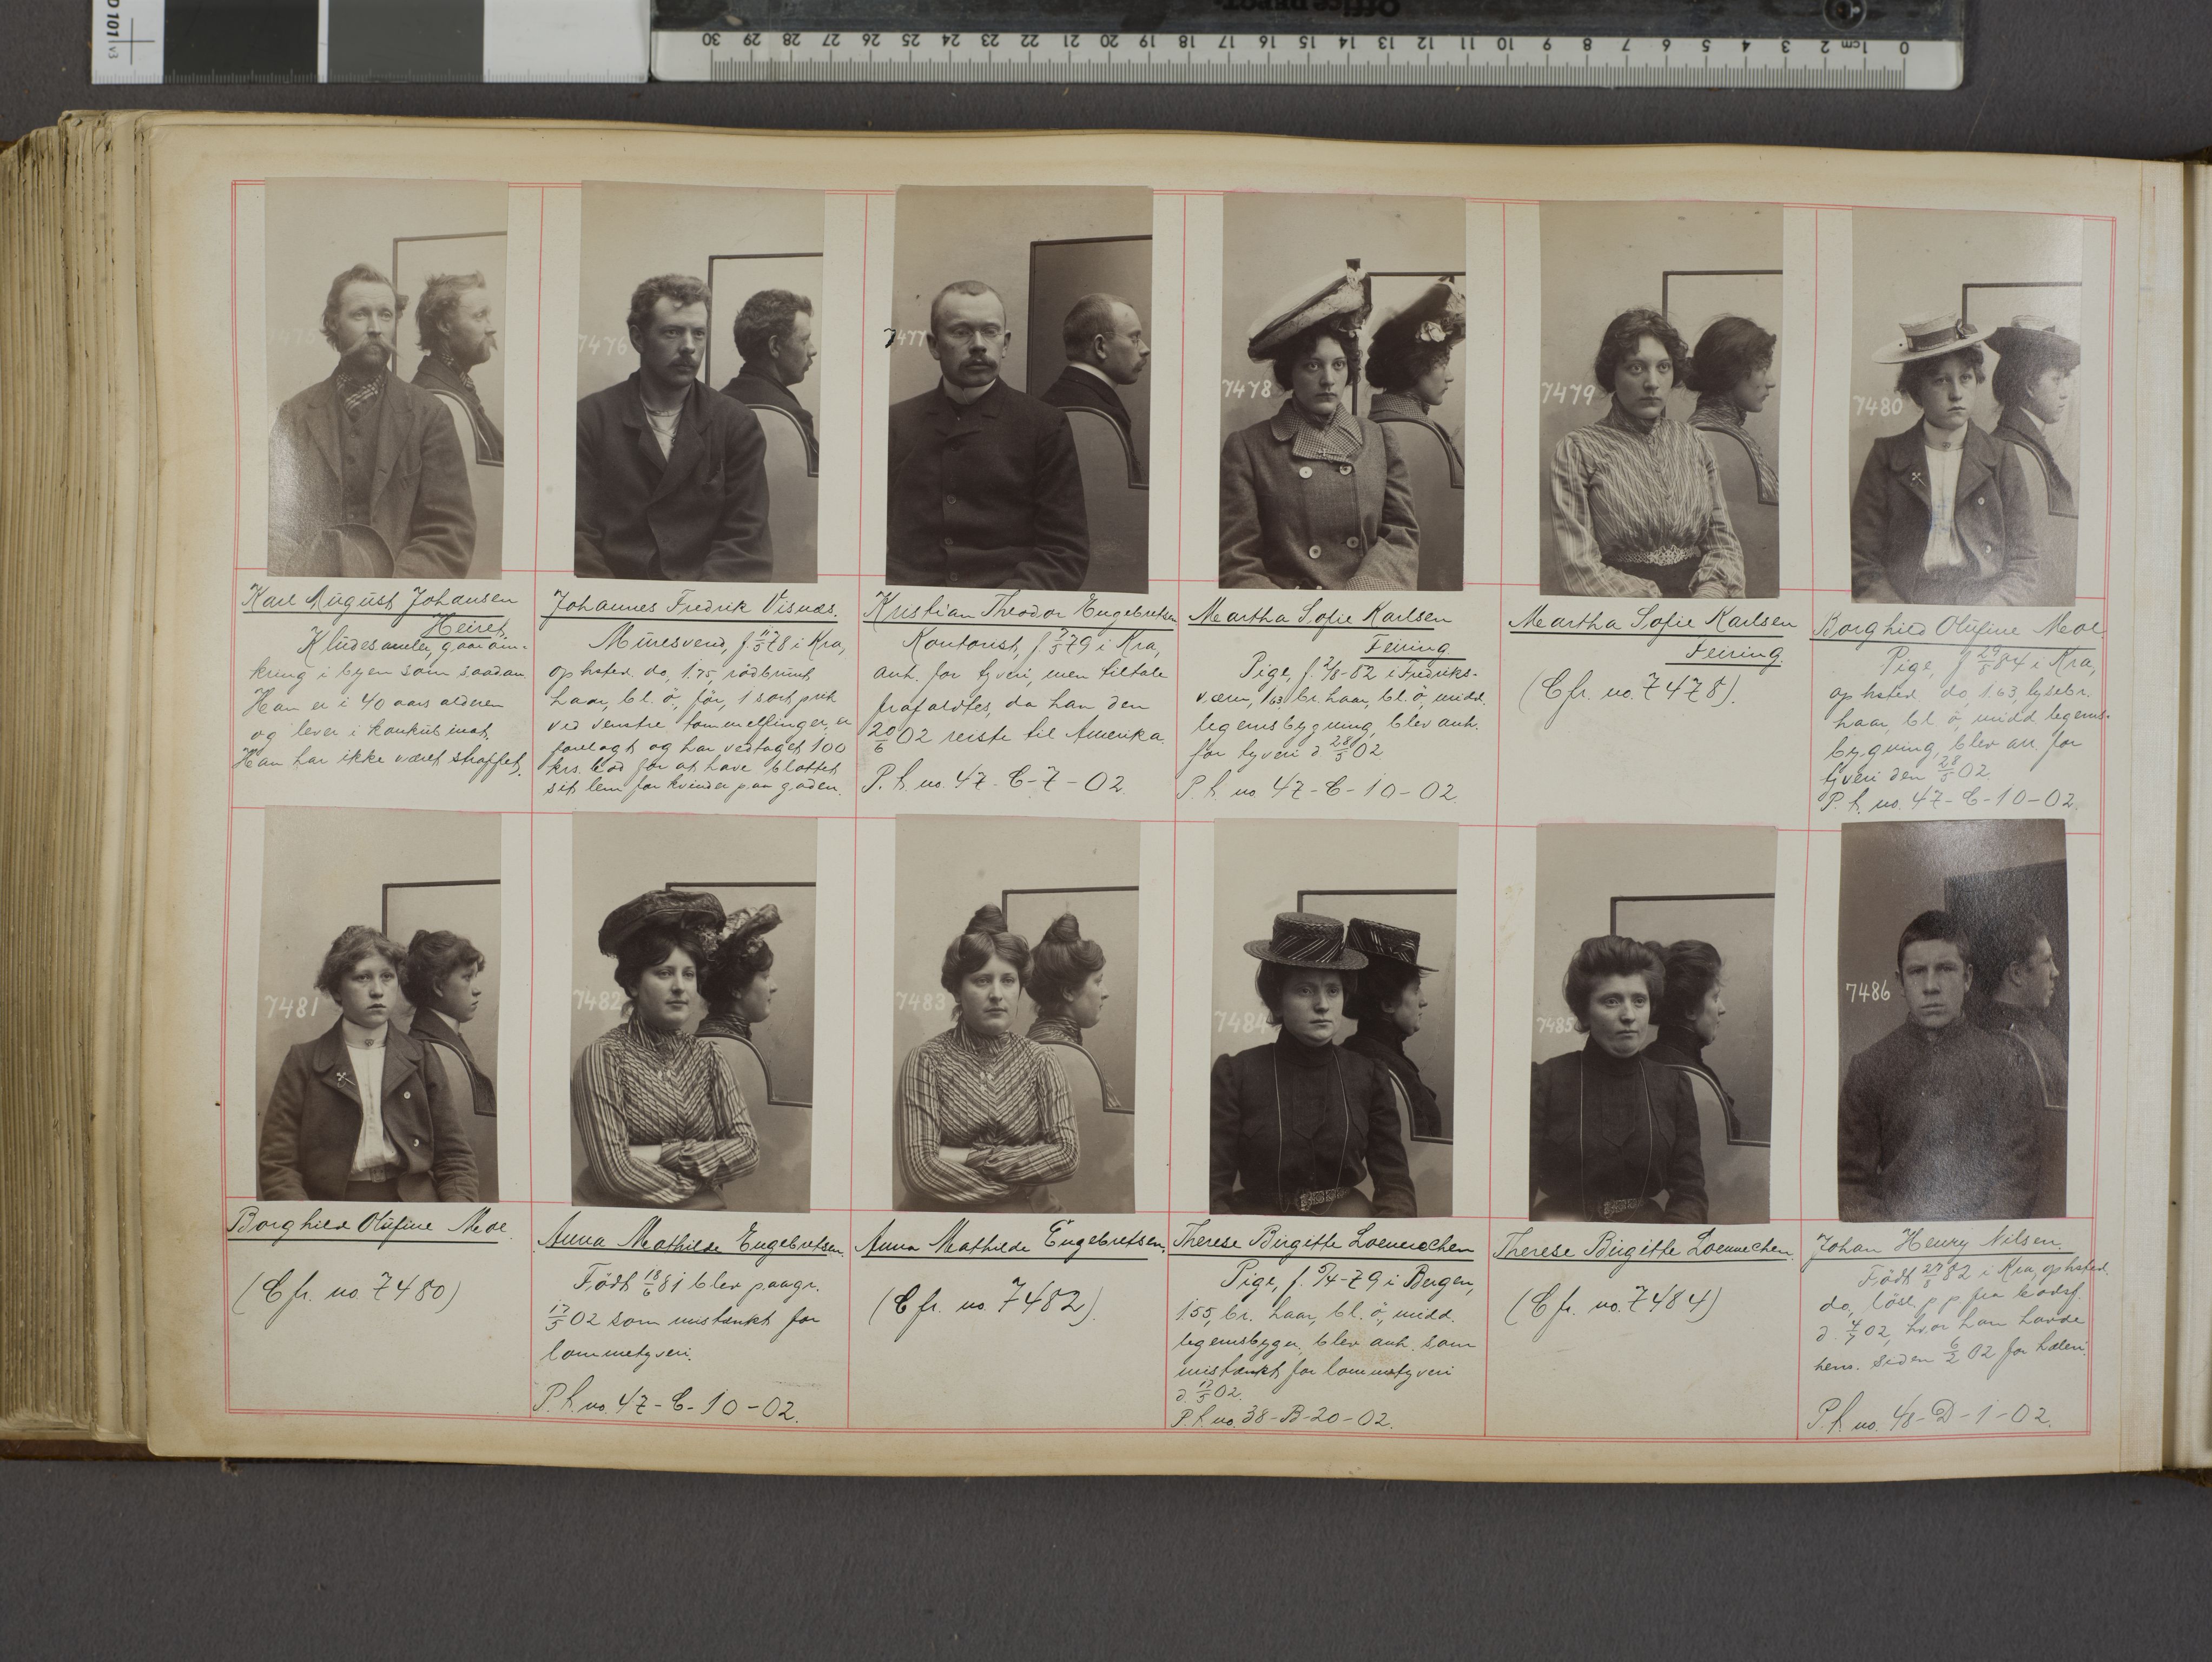 Office DEPOT
0 1cm 2 3 4 5 6 7 8 9 10 11 12 13 14 15 16 17 18 19 20 21 22 23 24 25 26 27 28 29 30
101 v3
7476
7477
7478
7479
7480
Karl August Johansen
Heiret.
Kludesamler, gaar om-
kring i byen som saadan
Han er i 40 aars alderen
og lever i konkubinat.
Han har ikke været straffet.
Johannes Fredrik Visnæs.
Muresvend, f. 11/5 78 i Kra,
ophsted. do, 1.75, rödbrunt
haar, bl. ö, för, 1 sort prik
ved venstre tommelfinger, er
forelagt og har vedtaget 100
krs. bod for at have blottet
sit lem for kvinder paa gaden.
Kristian Theodor Engebretsen
Kontorist, f. 7/5 79 i Kra,
anh. for tyveri, men tiltale
frafaldtes, da han den
20/6 02 reiste til Amerika.
P. h. no. 47-C-7-02.
Martha Sofie Karlsen
Feiring.
Pige, f. 2/8-82 i Fredriks-
værn, 163, br. haar, bl. ö, midd.
legemsbygning, blev anh.
for tyveri d 28/5 02
P. h. no 47-C-10-02.
Martha Sofie Karlsen
Feiring.
(Cfr. no. 7478).
Borghild Olufine Moe.
Pige, f 29/8 84 i Kra,
ophsted do, 1.63, lysebr.
haar, bl. ö, midd legems-
bygning, blev an. for
tyveri den 28/5 02.
P. h. no. 47-C-10-02
7481
7482
7483
7484
7485
7486
Borghild Olufine Moe.
(Cfr. no 7480)
Anna Mathilde Engebretsen.
Födt 18/6 81 blev paagr.
17/5 02 som mistænkt for
lommetyveri.
P. h. no. 47-C-10-02.
Anna Mathilde Engebretsen.
(Cfr. no. 7482).
Therese Birgitte Loennechen
Pige, f. 5/4-79 i Bergen,
155, br. haar, bl. ö, midd.
legemsbygn. blev anh. som
mistænkt for lommetyveri
d. 17/5 02.
P. h. no. 38-B-20-02.
Therese Birgitte Loennechen.
(Cfr. no. 7484)
Johan Henry Nilsen.
Födt 27/8 82 i Kra, ophsted.
do, lösl. p p fra bodsf.
d. 4/7 02, hvor han havde
hens. siden 6/2 02 for hæleri.
P. h. no. 48-D-1-02.